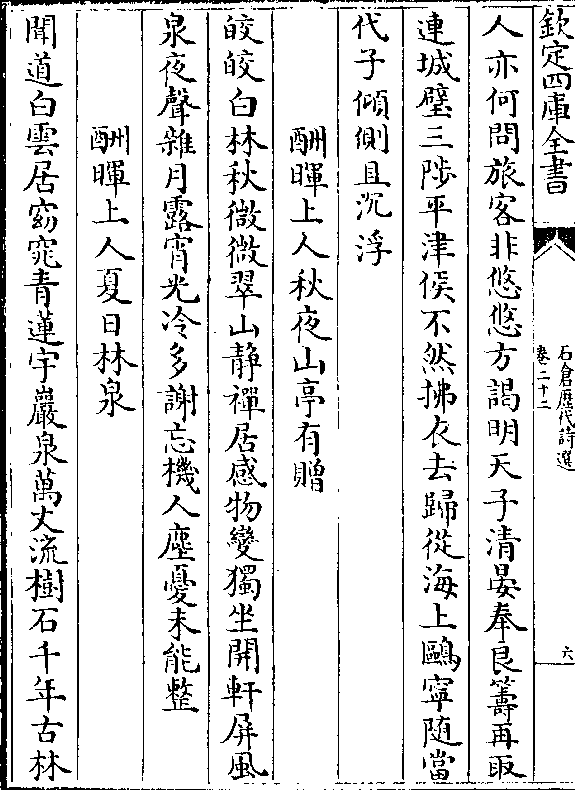 欽定四庫全書
石倉歷代詩選
卷二十二
六
人亦何問旅客非悠悠方謁明天子清晏奉良籌再取
連城璧三陟平津侯不然拂衣去歸從海上鷗寧随當
代子傾側且沉浮
酬暉上人秋夜山亭有贈
皎皎白林秋微微翠山静禪居感物變獨坐開軒屏風
泉夜聲雜月露宵光冷多謝忘機人塵憂未能整
酬暉上人夏日林泉
聞道白雲居窈窕青蓮宇巖泉萬丈流樹石千年古林